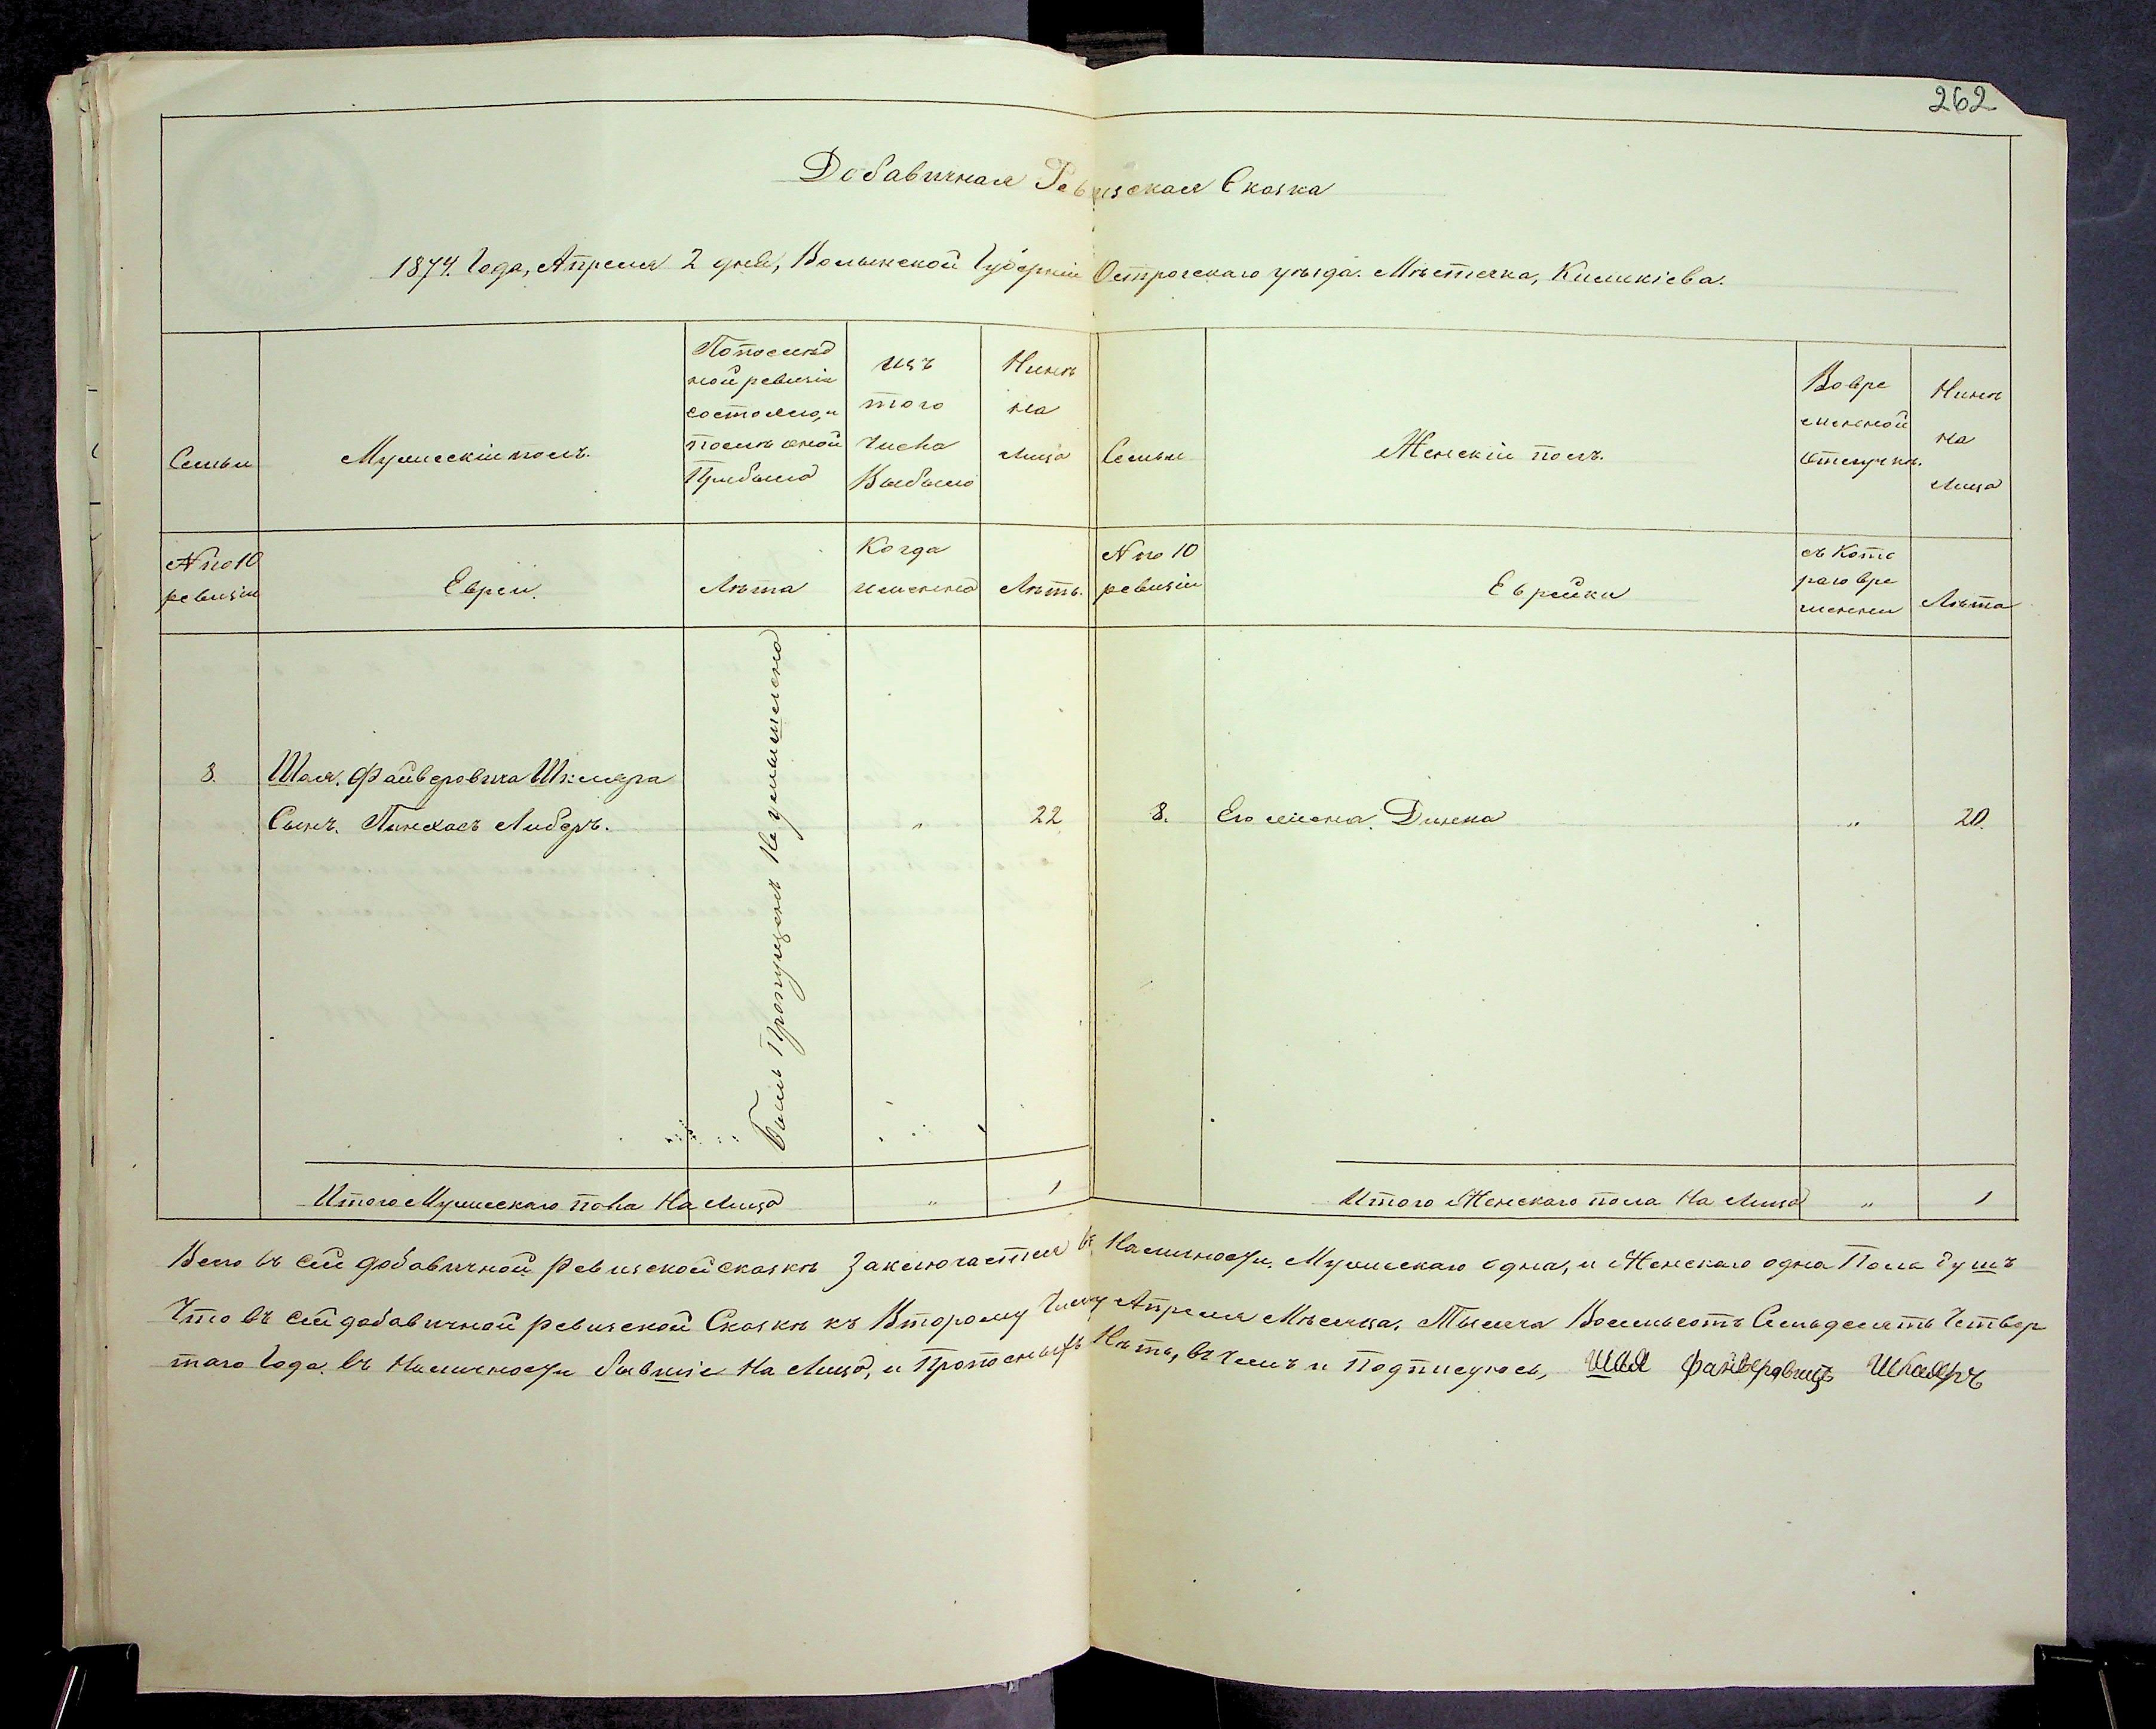 262
Добавичная Ревизская Сказка
1874. Года, Апреля 2 дня, Волынской Губерніи Острогскаго уѣзда. Мѣстечка, Киликіева.
Семьи
Мужескій полъ.
Попослѣд
ной ревизіи
состояло, и
послѣ оной
Прибыло
изъ
того
числа
Выбыло
Нынѣ
на
лицо
Семьи
Женскій полъ.
Вовре
менной
отлучкѣ.
Нынѣ
на
лицо
№ по 10
ревизіи
Евреи.
Лѣта
Когда
именно
Лѣтъ.
№ по 10
ревизіи
Еврейки
съ кото
раго вре
мении
Лѣта
Былъ пропущенъ не умышленно
8. Шая. Файверовича Шкляра
Сынъ. Пинхасъ Либеръ. " 22 8. Его жена. Динка " 20.
Итого Мужескаго пола на лицо " 1 Итого Женскаго пола на лицо " 1
Всего въ сей добавичной ревизской сказкѣ заключается въ Наличности, Мужескаго одна, и Женскаго одна Пола душъ
Что въ сей добавичной ревизской Сказкѣ къ Второму Числу Апреля Мѣсяца, Тысяча Восемьсотъ Семьдесятъ Четвер
таго Года. въ Наличности бывшіе на лицо, и Прописныхъ Нѣтъ, въ чемъ и Подписуюсь, Шая Файверовичъ Шкляръ